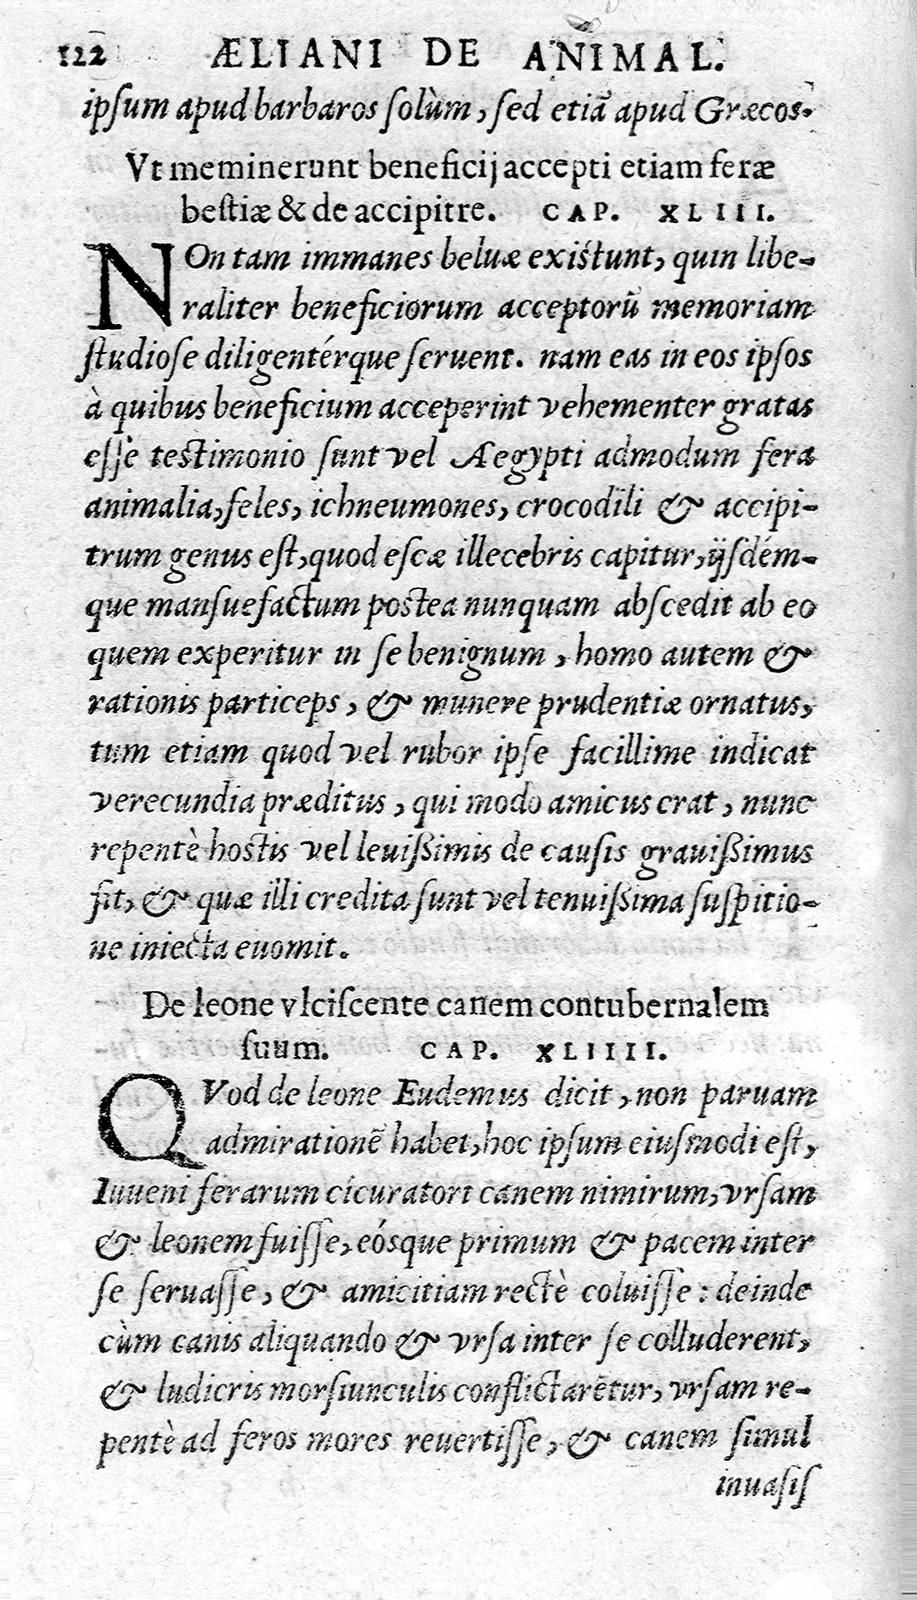 122 ÆLIANI DE ANIMAL.
ipſum apud barbaros ſolùm, ſed etiã apud Græcos.
Vt meminerunt beneficij accepti etiam feræ
beſtiæ & de accipitre. CAP. XLIII.
NOn tam immanes beluæ exiſtunt, quin libe-
raliter beneficiorum acceptorū memoriam
ſtudioſe diligentérque ſeruent. nam eas in eos ipſos
à quibus beneficium acceperint vehementer gratas
eſſe teſtimonio ſunt vel Aegypti admodum fera
animalia, feles, ichneumones, crocodili & accipi-
trum genus eſt, quod eſcæ illecebris capitur, ijſdém-
que manſuefactum poſtea nunquam abſcedit ab eo
quem experitur in ſe benignum, homo autem &
rationis particeps, & munere prudentiæ ornatus,
tum etiam quod vel rubor ipſe facillime indicat
verecundia præditus, qui modo amicus erat, nunc
repentè hoſtis vel leuiſsimis de cauſis grauiſsimus
fit, & quæ illi credita ſunt vel tenuiſsima ſuſpitio-
ne iniecta euomit.
De leone vlciſcente canem contubernalem
ſuum. CAP. XLIIII.
QVod de leone Eudemus dicit, non paruam
admirationē habet, hoc ipſum eiuſmodi eſt,
Iuueni ferarum cicuratori canem nimirum, vrſam
& leonem fuiſſe, eósque primum & pacem inter
ſe ſeruaſſe, & amicitiam rectè coluiſſe: deinde
cùm canis aliquando & vrſa inter ſe colluderent,
& ludicris morſiunculis conflictarētur, vrſam re-
pentè ad feros mores reuertiſſe, & canem ſimul
inuaſiſ